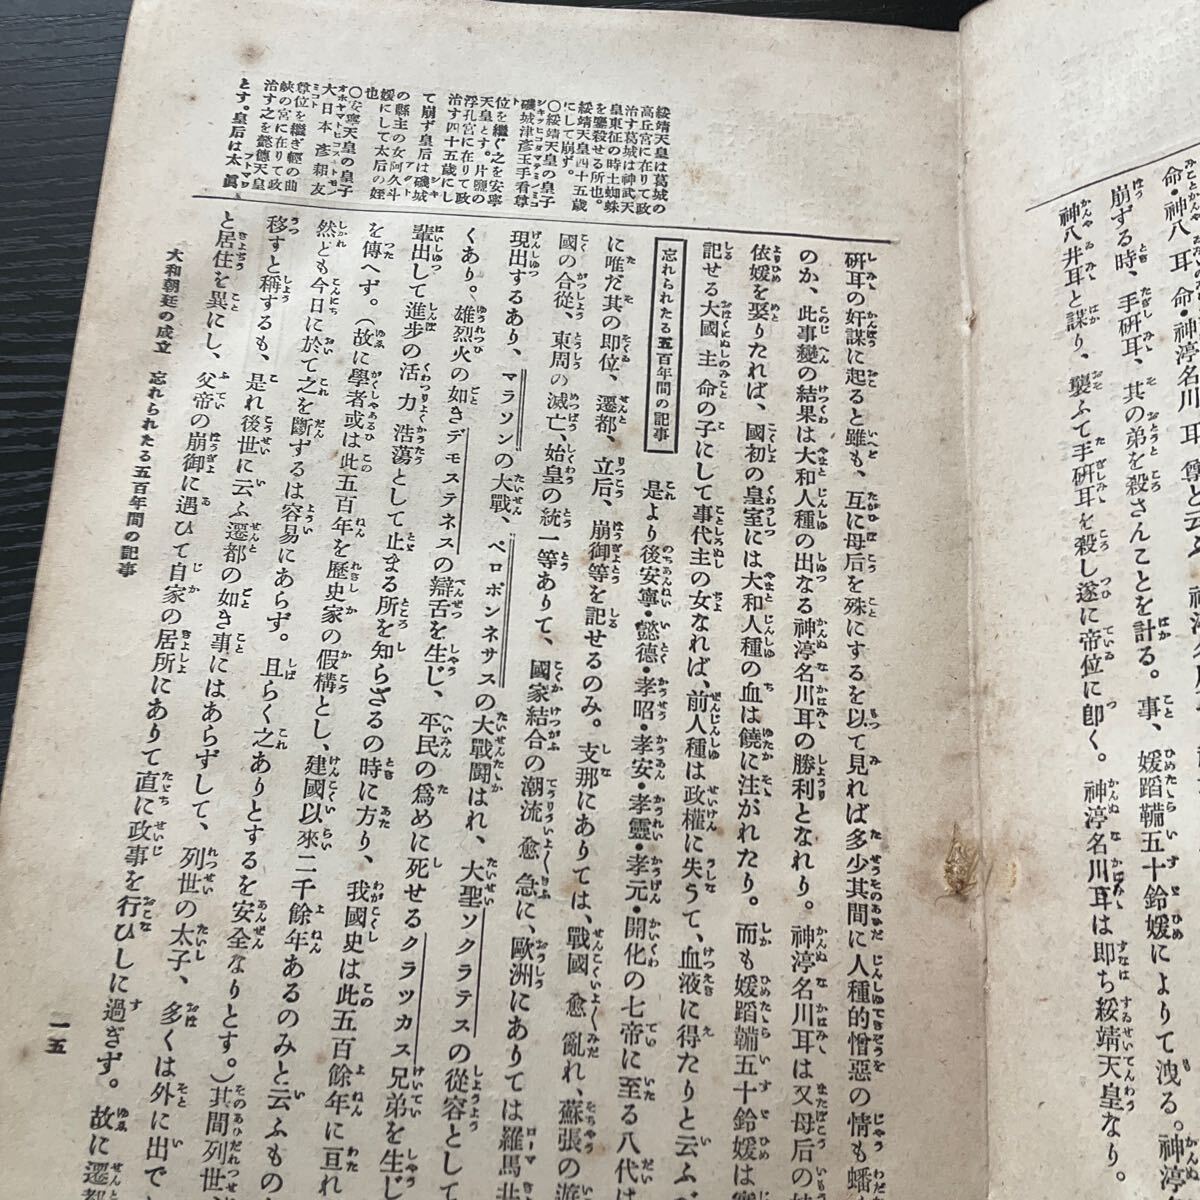 命・神八耳命・神渟名川耳尊と云
崩ずる時、手硏耳、其の弟を殺さんことを計る。事、媛蹈鞴五十鈴媛によりて洩る。神
神八井耳と謀り、襲ふて手硏耳を殺し遂に帝位に卽く。神渟名川耳は卽ち綏靖天皇なり。
綏靖天皇は葛城の
高丘宮に在りて政
治す葛城は神武天
皇東征の時土蜘蛛
を鏖殺せる所也。
綏靖天皇四十五歲
にして崩ず。
〇綏靖天皇の皇子
磯城津彥玉手看尊
位を繼ぐ之を安寧
天皇とす。片鹽の
浮孔宮に在りて政
治す四十五歲にし
て崩ず皇后は磯城
の縣主の女阿久斗
媛にして太后の姪
也
〇安寧天皇の皇子
大日本彥耜友
尊位を繼ぎ輕の曲
峽の宮に在りて政
治す之を懿德天皇
とす。皇后は太眞
硏耳の奸謀に起ると雖も、互に母后を殊にするを以て見れば多少其間に人種的憎惡の情も蟠
のか、此事變の結果は大和人種の出なる神渟名川耳の勝利となれり。神渟名川耳は又母后の
依媛を娶りたれば、國初の皇室には大和人種の血は饒に注がれたり。而も媛蹈鞴五十鈴媛は
記せる大國主命の子にして事代主の女なれば、前人種は政權に失うて、血液に得たりと云ふべ
忘れられたる五百年間の記事
是より後安寧・懿德・孝昭・孝安・孝靈・孝元・開化の七帝に至る八代は
に唯だ其の卽位、遷都、立后、崩御等を記せるのみ。支那にありては、戰國愈亂れ、蘇張の游
國の合從、東周の滅亡、始皇の統一等ありて、國家結合の潮流愈急に、歐洲にありては羅馬共
現出するあり、マラソンの大戰、ペロポンネサスの大戰鬪はれ、大聖ソクラテスの從容として
くあり。雄烈火の如きデモステネスの辯舌を生じ、平民の爲めに死せるクラッカス兄弟を生じ
輩出して進步の活力浩蕩として止まる所を知らざるの時に方り、我國史は此五百餘年に亘れ
を傳へず。（故に學者或は此五百年を歷史家の假構とし、建國以來二千餘年あるのみと云ふもの
然ども今日に於て之を斷ずるは容易にあらず。且らく之ありとするを安全なりとす。）其間列世
移すと稱するも、是れ後世に云ふ遷都の如き事にはあらずして、列世の太子、多くは外に出で
と居住を異にし、父帝の崩御に遇ひて自家の居所にありて直に政事を行ひしに過ぎず。故に遷都
大和朝廷の成立　忘れられたる五百年間の記事
一五